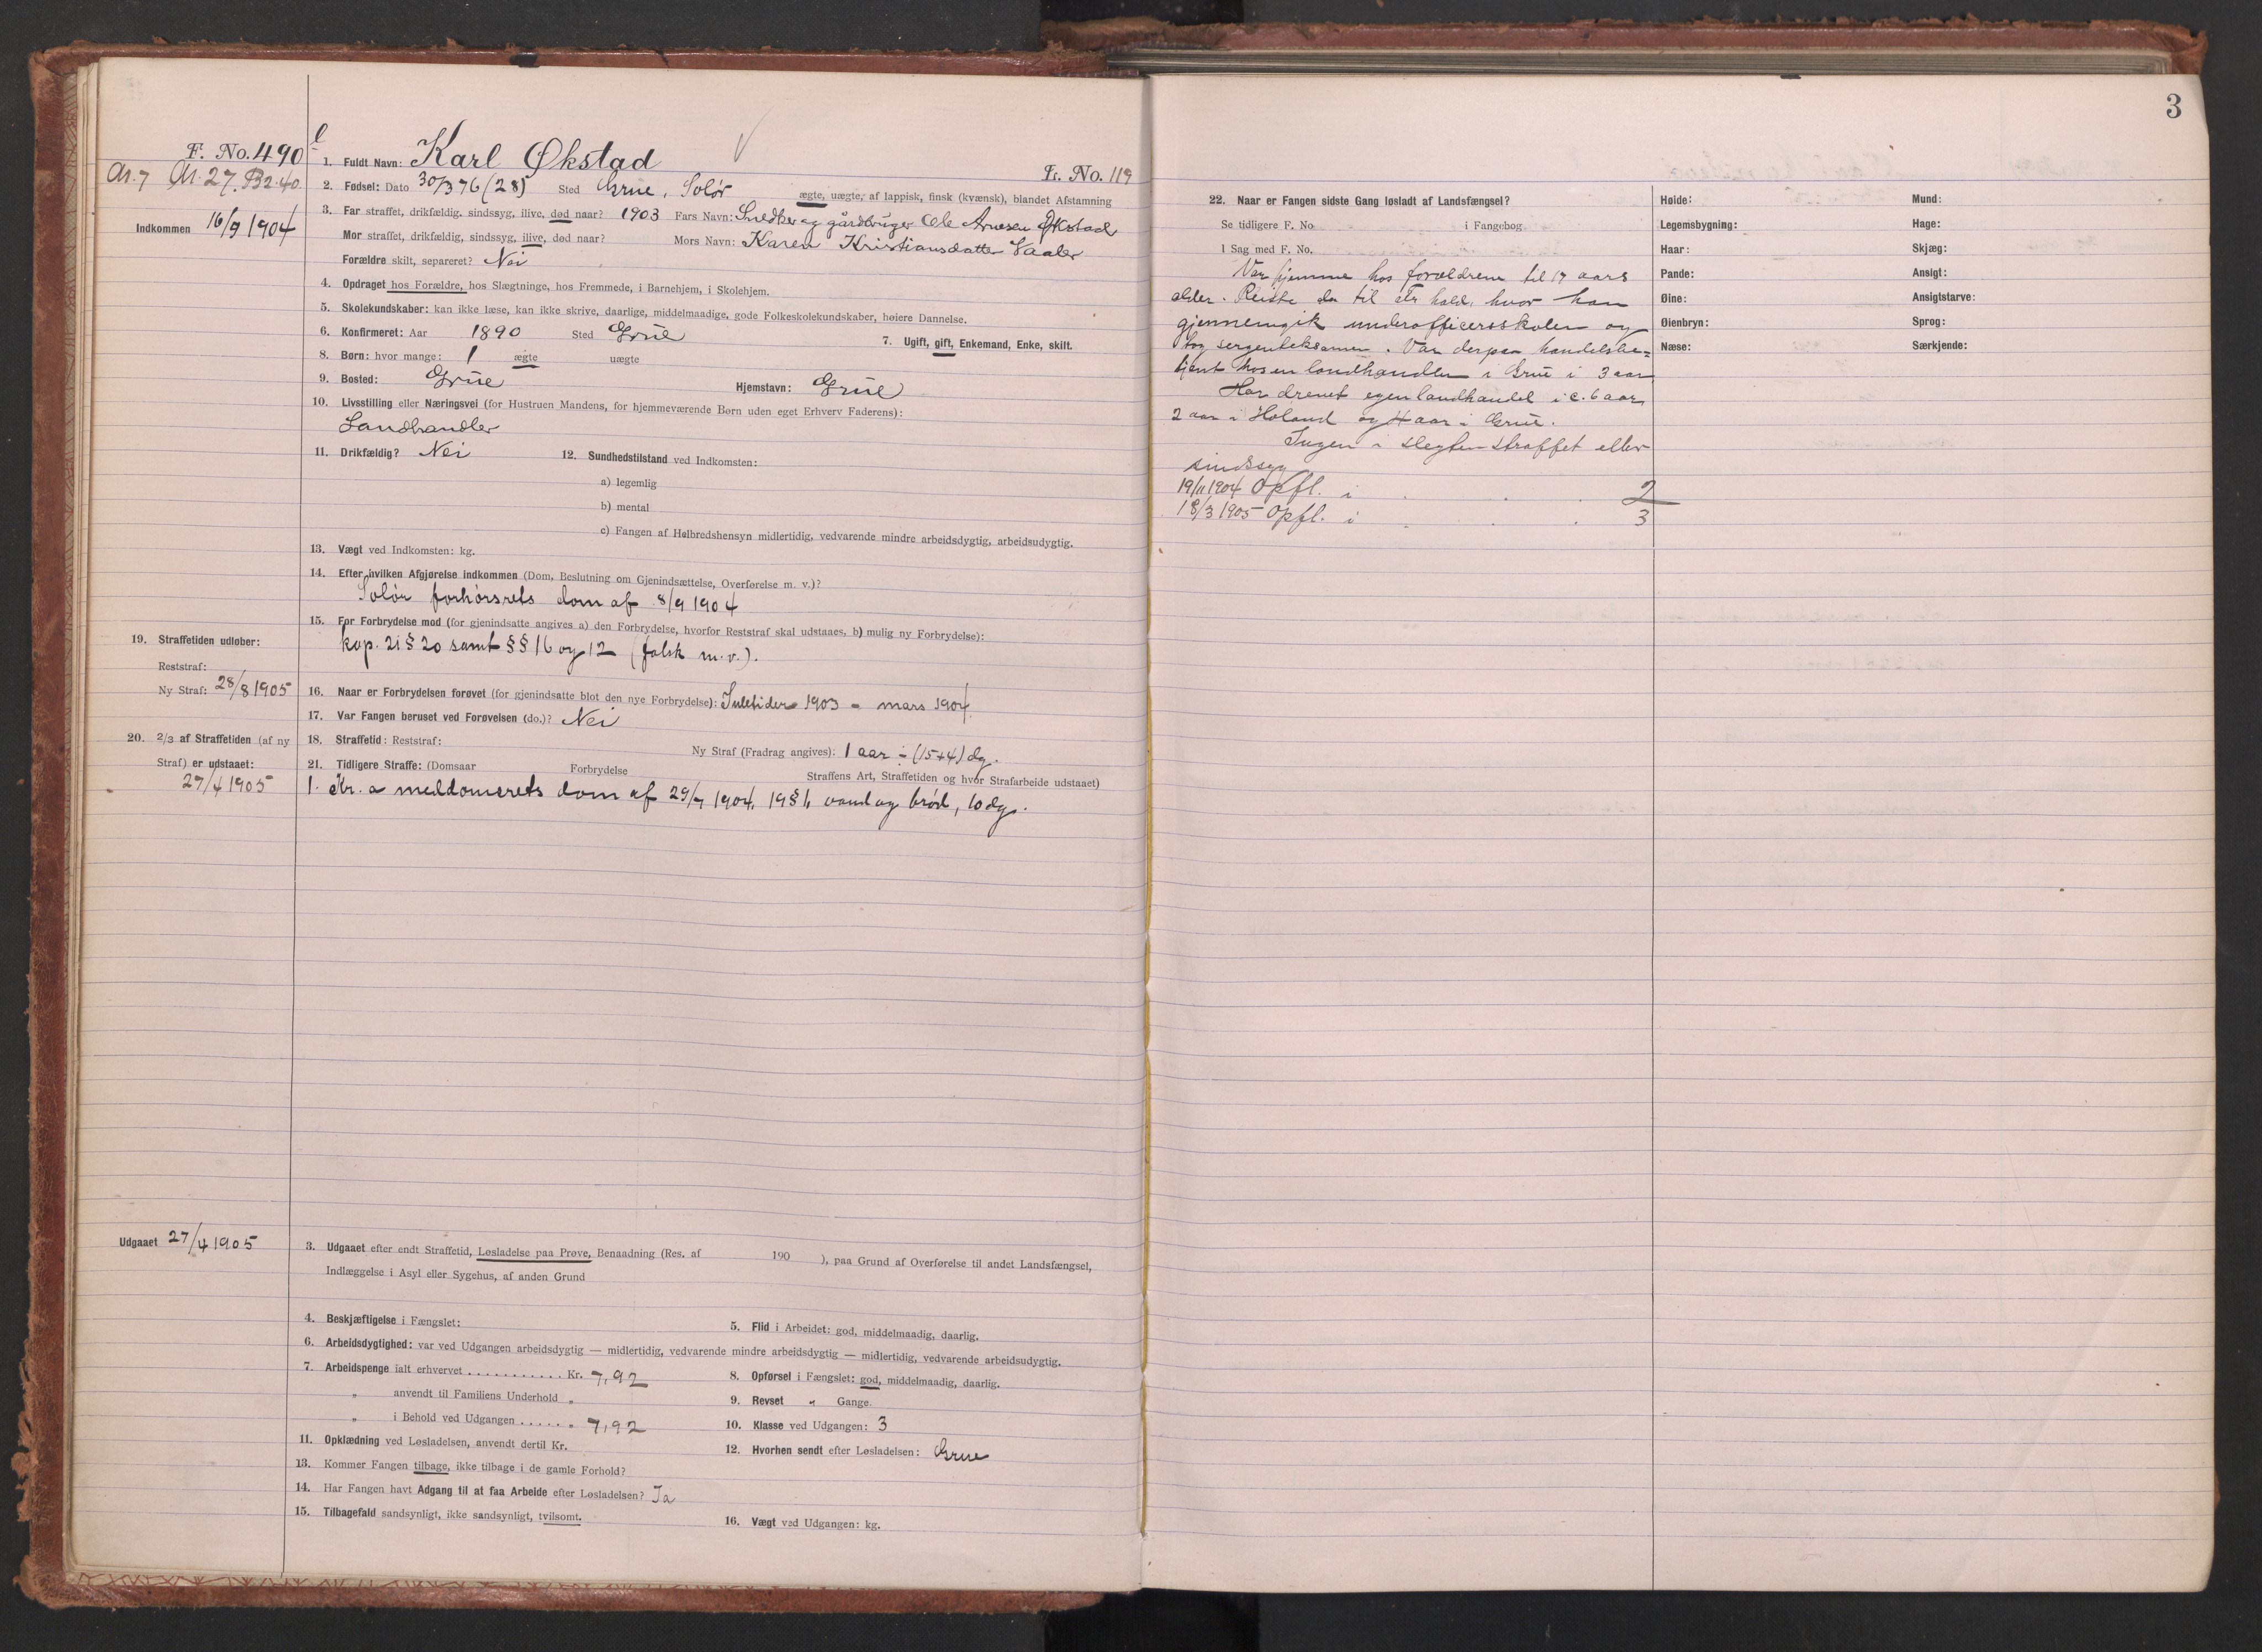 3
F. No. 490
l
Ar. 7 Ar. 27. B2. 40.
Indkommen 16/9 1904
1. Fuldt Navn: Karl Økstad
L. No. 119
2. Fødsel: Dato 30/3 76 (28) Sted Grue, Solør ægte, uægte, af lappisk, finsk (kvænsk), blandet Afstamning
3. Far straffet, drikfældig, sindssyg, ilive, død naar? 1903 Fars Navn: Snedker og gårdbruger Ole Arnesen Økstad
Mor straffet, drikfældig, sindssyg, ilive, død naar? Mors Navn: Karen Kristiansdatter Vaaler
Forældre skilt, separeret? Nei
4. Opdraget hos Forældre, hos Slægtninge, hos Fremmede, i Barnehjem, i Skolehjem.
5. Skolekundskaber: kan ikke læse, kan ikke skrive, daarlige, middelmaadige, gode Folkeskolekundskaber, høiere Dannelse.
6. Konfirmeret: Aar 1890 Sted Grue 7. Ugift, gift, Enkemand, Enke, skilt.
8. Børn: hvor mange: 1 ægte uægte
9. Bosted: Grue Hjemstavn: Grue
10. Livsstilling eller Næringsvei (for Hustruen Mandens, for hjemmeværende Børn uden eget Erhverv Faderens):
Landhandler
11. Drikfældig? Nei 12. Sundhedstilstand ved Indkomsten:
a) legemlig
b) mental
c) Fangen af Helbredshensyn midlertidig, vedvarende mindre arbeidsdygtig, arbeidsudygtig.
13. Vægt ved Indkomsten: kg.
14. Efter hvilken Afgjørelse indkommen (Dom, Beslutning om Gjenindsættelse, Overførelse m. v.)?
Solør forhørsrets dom af 8/9 1904
15. For Forbrydelse mod (for gjenindsatte angives a) den Forbrydelse, hvorfor Reststraf skal udstaaes, b) mulig ny Forbrydelse):
kap. 21 § 20 samt §§ 16 og 12 (falsk m.v.).
19. Straffetiden udløber:
Reststraf:
Ny Straf: 28/8 1905
16. Naar er Forbrydelsen forøvet (for gjenindsatte blot den nye Forbrydelse): Juletider 1903 - mars 1904.
17. Var Fangen beruset ved Forøvelsen (do.)? Nei
20. 2/3 af Straffetiden (af ny
Straf) er udstaaet:
27/4 1905
18. Straffetid: Reststraf: Ny Straf (Fradrag angives): 1 aar ÷ (15+4) dg.
21. Tidligere Straffe: (Domsaar Forbrydelse Straffens Art, Straffetiden og hvor Strafarbeide udstaaet)
1. Kr.a meddomsrets dom af 29/7 1904, 19 § 1, vand og brød, 10 dg.
Udgaaet 27/4 1905
3. Udgaaet efter endt Straffetid, Løsladelse paa Prøve, Benaadning (Res. af 190 ), paa Grund af Overførelse til andet Landsfængsel,
Indlæggelse i Asyl eller Sygehus, af anden Grund
4. Beskjæftigelse i Fængslet: 5. Flid i Arbeidet: god, middelmaadig, daarlig.
6. Arbeidsdygtighed: var ved Udgangen arbeidsdygtig — midlertidig, vedvarende mindre arbeidsdygtig — midlertidig, vedvarende arbeidsudygtig.
7. Arbeidspenge ialt erhvervet ........... Kr. 7,92 8. Opførsel i Fængslet: god, middelmaadig, daarlig.
„ anvendt til Familiens Underhold „ 9. Revset „ Gange.
„ i Behold ved Udgangen ..... „ 7,92 10. Klasse ved Udgangen: 3
11. Opklædning ved Løsladelsen, anvendt dertil Kr. 12. Hvorhen sendt efter Løsladelsen: Grue
13. Kommer Fangen tilbage, ikke tilbage i de gamle Forhold?
14. Har Fangen havt Adgang til at faa Arbeide efter Løsladelsen? Ja
15. Tilbagefald sandsynligt, ikke sandsynligt, tvilsomt. 16. Vægt ved Udgangen: kg.
22. Naar er Fangen sidste Gang løsladt af Landsfængsel?
Se tidligere F. No i Fangebog
I Sag med F. No.
Var hjemme hos forældrene til 17 aars
alder. Reiste da til hald, hvor han
gjennemgik underofficersskolen og
tog sergenteksamen. Var derpaa handelsbe=
tjent hos en landhandler i Grue i 3 aar
Har drevet egen landhandel i c. 6 aar
2 aar i Høland og 4 aar i Grue.
Ingen i slegten straffet eller
sindssyg
19/11 1904 Opfl. i . . . 2
18/3 1905 Opfl. i . . . 3
Høide: Mund:
Legemsbygning: Hage:
Haar: Skjæg:
Pande: Ansigt:
Øine: Ansigtsfarve:
Øienbryn: Sprog:
Næse: Særkjende: